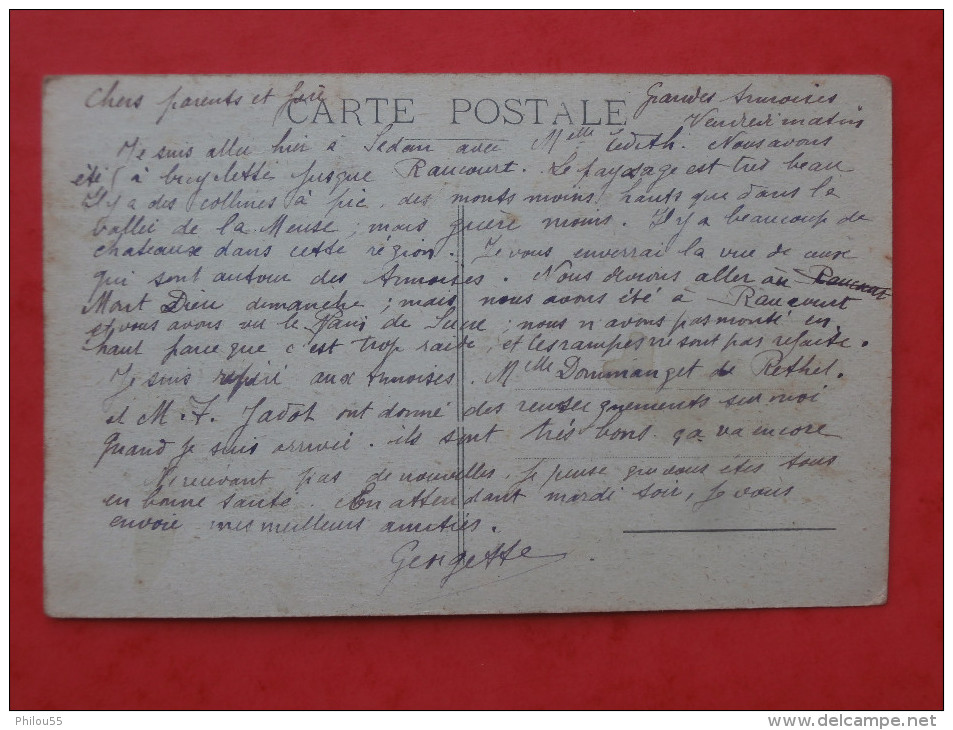 Chers parents et frère
CARTE POSTALE
Grandes Armoises
Vendredi matin
Je suis allée hier à Sedan avec Melle Edith. Nous avons
été à bicyclette jusque Raucourt. Le paysage est très beau
Il y a des collines à pic, des monts moins hauts que dans la
vallée de la Meuse, mais guère moins. Il y a beaucoup de
chateaux dans cette région. Je vous enverrai la vue de ceux
qui sont autour des Armoises. Nous devions aller au
Mont Dieu dimanche; mais nous avons été à Raucourt
et vous avons vu le Pain de Sucre; nous n'avons pas monté en
haut parce que c'est trop raide, et les rampes ne sont pas refaite.
Je suis aux Armoises. Melle Dommanget de Rethel.
et M. F. Jadot ont donné des renseignements sur moi
quand je suis arrivée. ils sont très bons. ça va encore
recevant pas de nouvelles, je pense que vous êtes tous
en bonne santé. En attendant mardi soir, je vous
envoie mes meilleurs amitiés.
Georgette
Philou55
www.delcampe.net